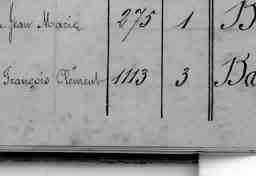 Jean Marie 275 1 B
François Clément 1113 3 Ba